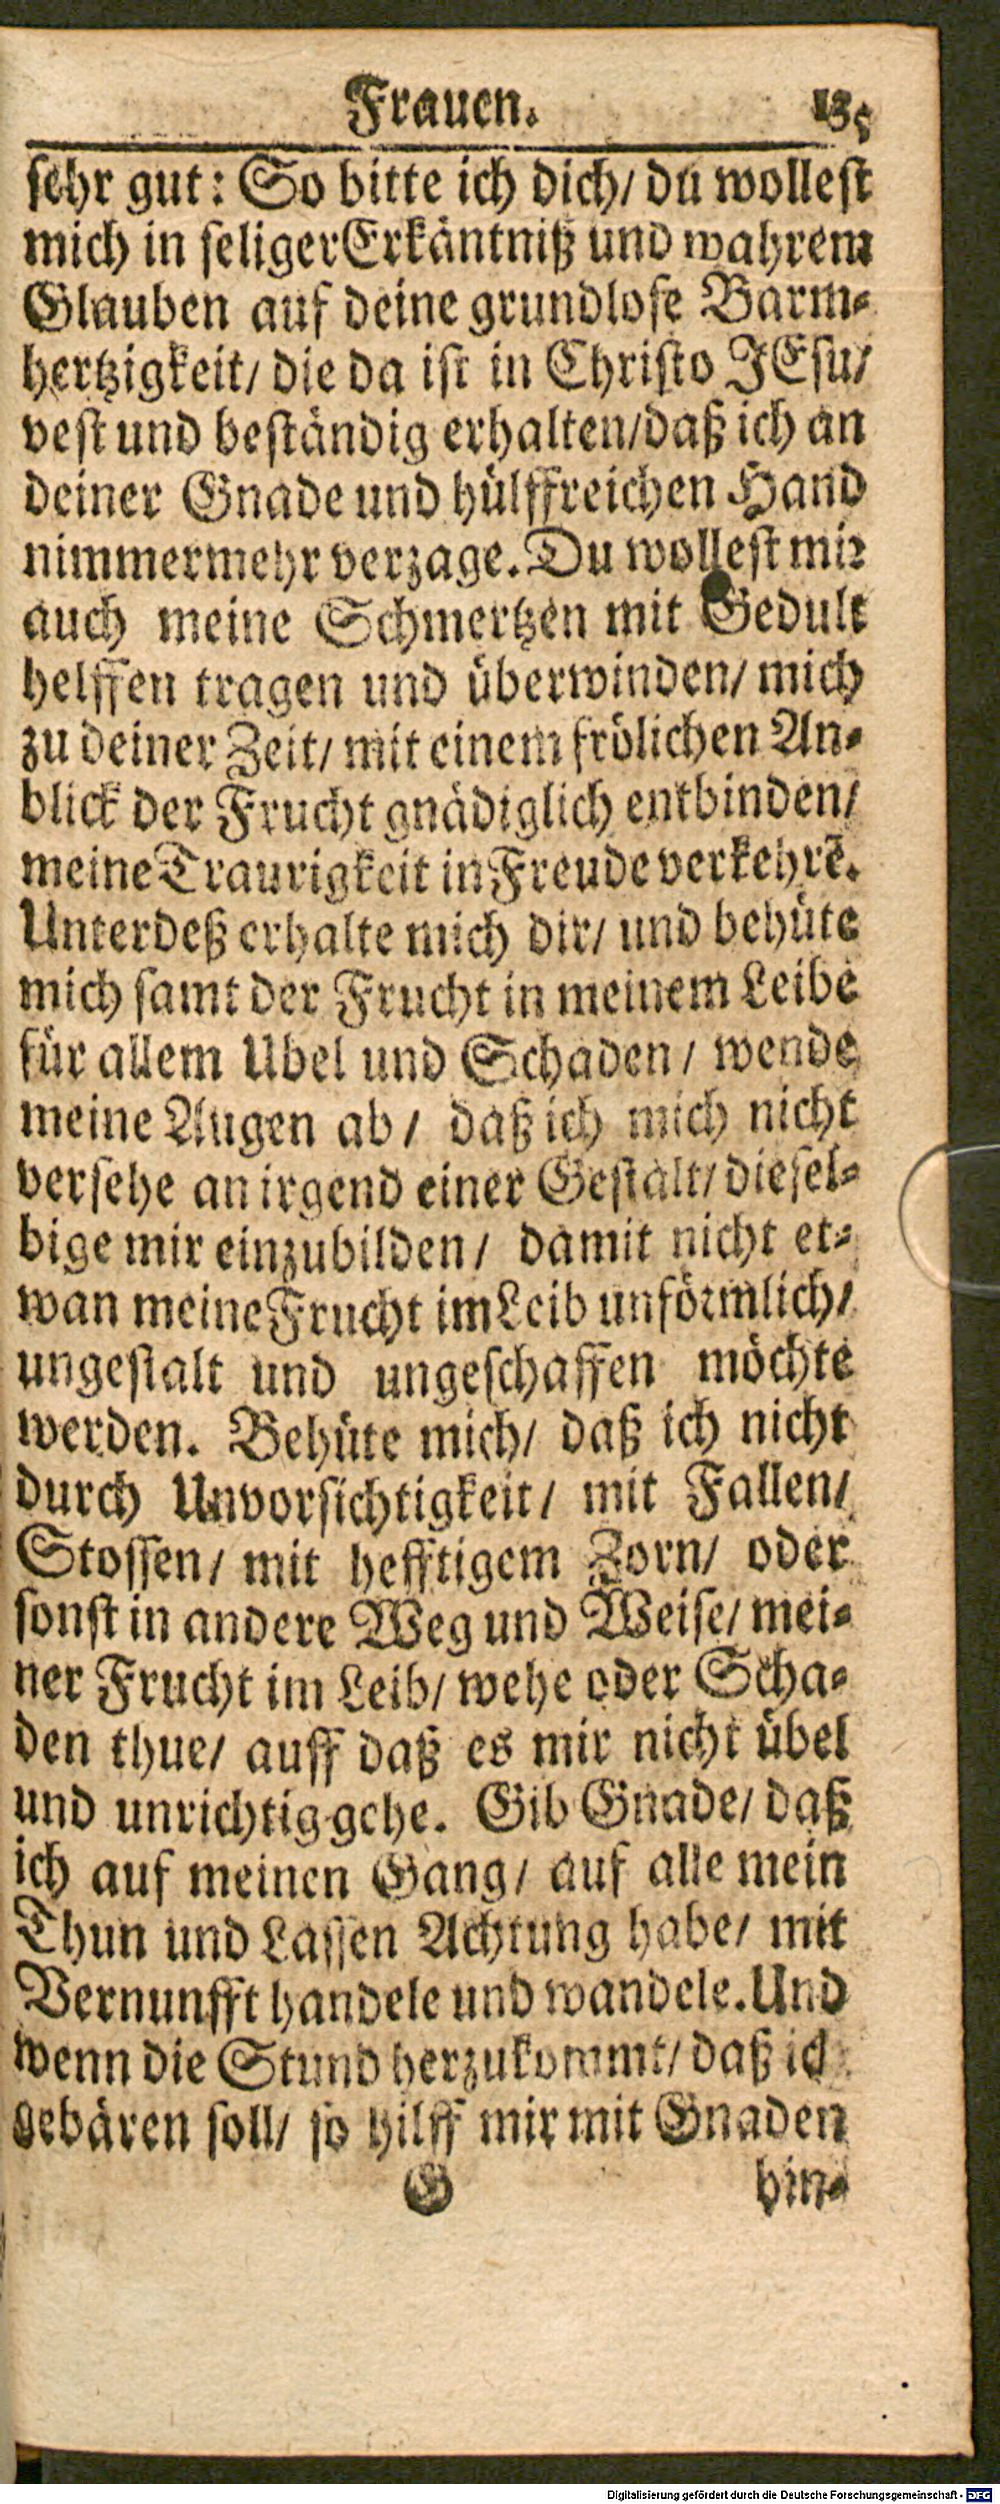 Frauen. 135
sehr gut: So bitte ich dich/ du wollest
mich in seliger Erkäntniß und wahrem
Glauben auf deine grundlose Barm-
hertzigkeit/ die da ist in Christo JEsu/
vest und beständig erhalten/ daß ich an
deiner Gnade und hülffreichen Hand
nimmermehr verzage. Du wollest mir
auch meine Schmertzen mit Gedult
helffen tragen und überwinden/ mich
zu deiner Zeit/ mit einem frölichen An-
blick der Frucht gnädiglich entbinden/
meine Traurigkeit in Freude verkehrē.
Unterdeß erhalte mich dir/ und behüte
mich samt der Frucht in meinem Leibe
für allem Ubel und Schaden/ wende
meine Augen ab/ daß ich mich nicht
versehe an irgend einer Gestalt/ diesel-
bige mir einzubilden/ damit nicht et-
wan meine Frucht im Leib unförmlich/
ungestalt und ungeschaffen möchte
werden. Behüte mich/ daß ich nicht
durch Unvorsichtigkeit/ mit Fallen/
Stossen/ mit hefftigem Zorn/ oder
sonst in andere Weg und Weise/ mei-
ner Frucht im Leib/ wehe oder Scha-
den thue/ auff daß es mir nicht übel
und unrichtig gehe. Gib Gnade/ daß
ich auf meinen Gang/ auf alle mein
Thun und Lassen Achtung habe/ mit
Vernunfft handele und wandele. Und
wenn die Stund herzukommt/ daß ich
gebären soll/ so hilff mir mit Gnaden
G hin-
Digitalisierung gefördert durch die Deutsche Forschungsgemeinschaft - DFG